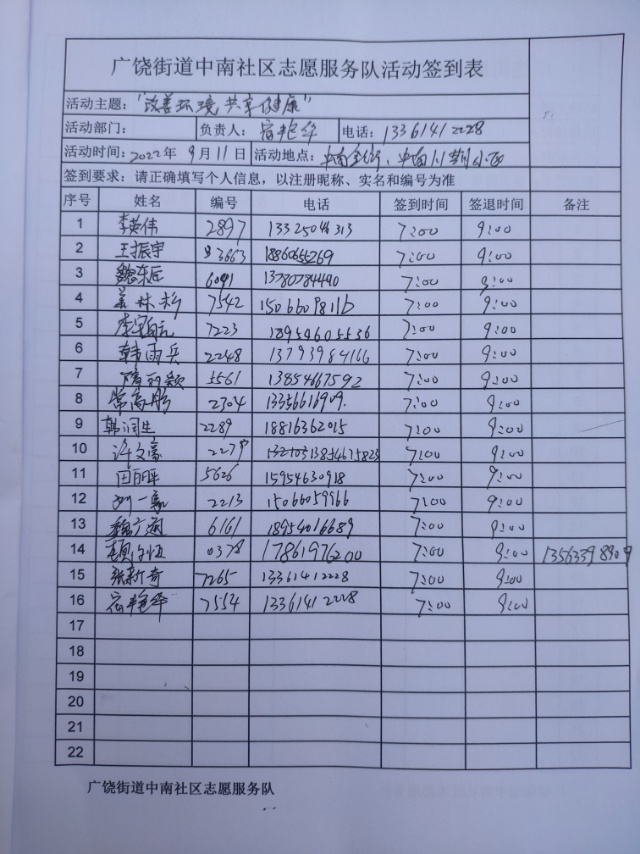 广饶街道中南社区志愿服务队活动签到表
活动主题："改善环境 共享健康"
活动部门： 负责人：宿艳华 电话：13361412228
活动时间：2022年9月11日 活动地点：中南
签到要求：请正确填写个人信息，以注册昵称、实名和编号为准
序号 姓名 编号 电话 签到时间 签退时间 备注
1 李英伟 2897 13325046313 7:00 9:00
2 王振宇 3663 7:00 9:00
3 6091 13780784490 7:00 9:00
4 姜林杉 7542 7:00 9:00
5 7223 18954605536 7:00 9:00
6 韩雨兵 2248 13793984166 7:00 9:00
7 隋丽颖 5561 13854667592 7:00 9:00
8 常高彤 2304 7:00 9:00
9 韩润生 2289 18816362015 7:00 9:00
10 许文豪 2279 7:00 9:00
11 5626 15954630918 7:00 9:00
12 刘一豪 2213 15066059966 7:00 9:00
13 6161 18954016689 7:00 9:00
14 0378 17861976200 7:00 9:00 13563398909
15 张新奇 7265 13361412228 7:00 9:00
16 宿艳华 7554 13361412228 7:00 9:00
17
18
19
20
21
22
广饶街道中南社区志愿服务队